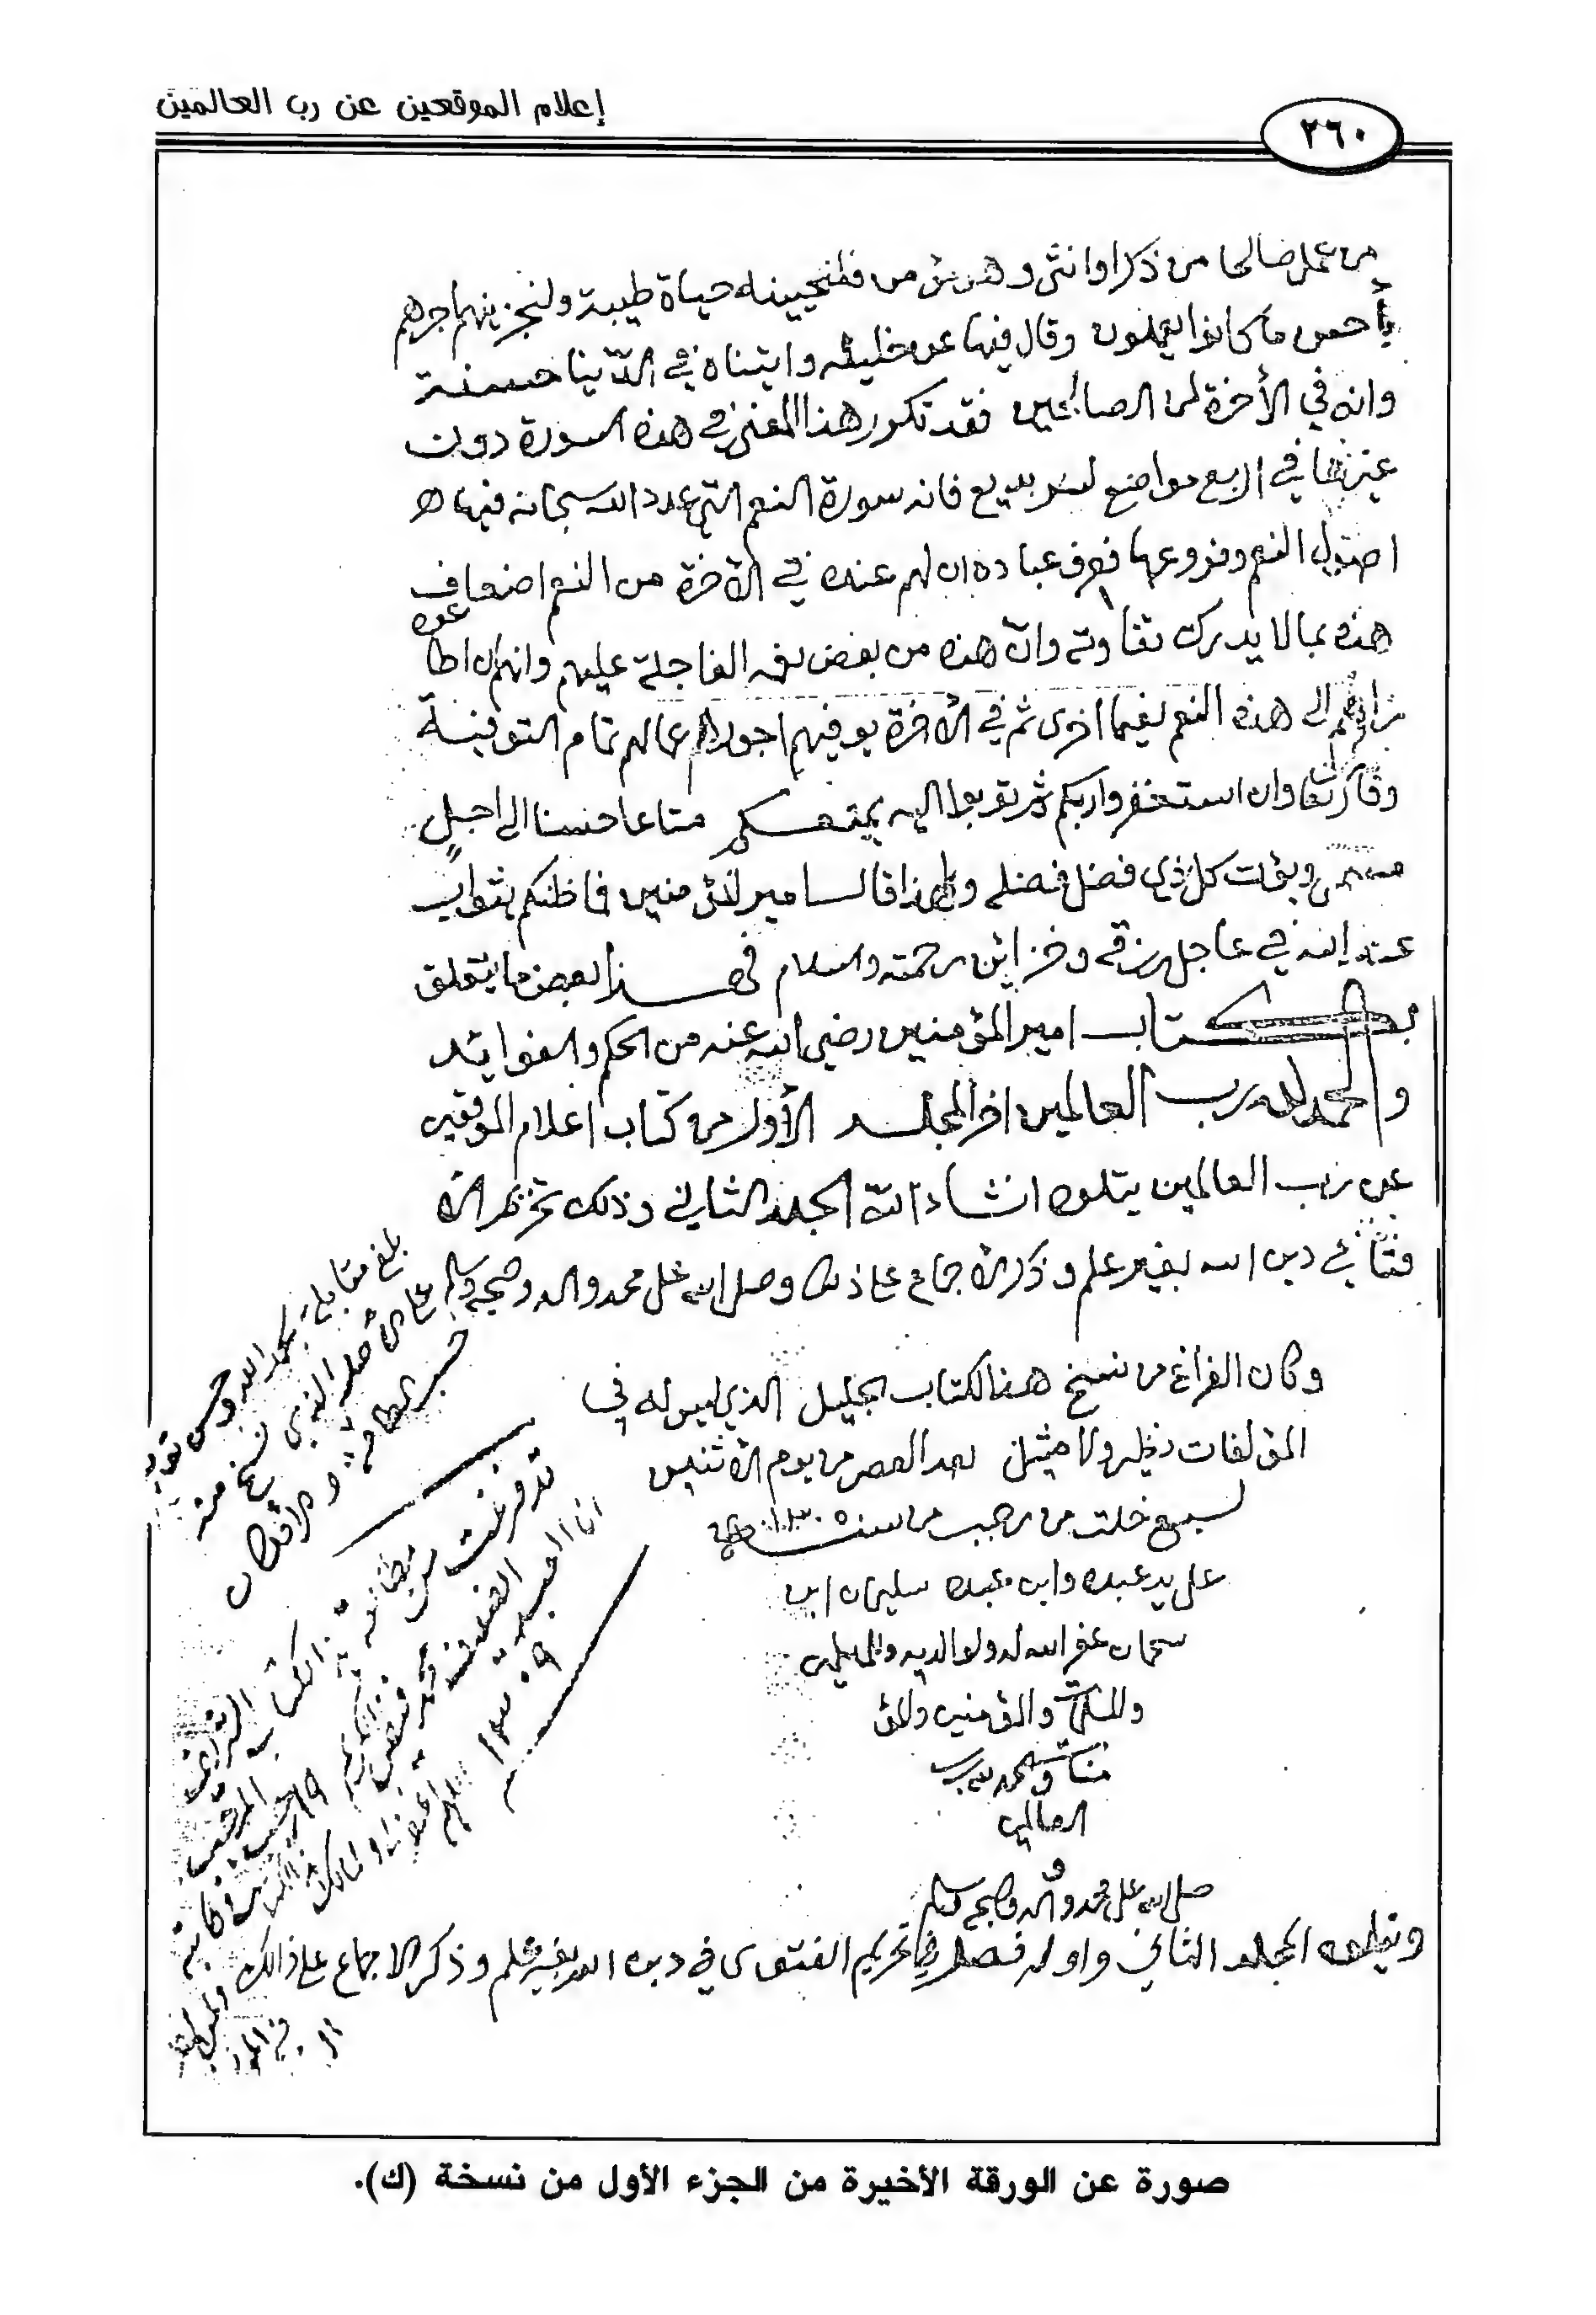 إعلام الموقعين عن رب العالمين
٢٦٠
من عمل صالحا من ذكر اوانثى وهو مؤمن فلنحيينه حياة طيبة ولنجزينهم اجرهم
بأحسن ما كانوا يعملون وقال فيها عن خليله واتيناه في الدنيا حسنة
وانه في الأخرة لمن الصالحين فقد تكرر هذا المعنى في هذه السورة دون
غيرها في اربع مواضع لسر بديع فانه سورة النعم التي عدد الله سبحانه فيها
اصول النعم وفروعها فعرف عباده ان لهم عنده في الآخرة من النعم اضعاف
هذه بما لا يدرك تفاوته وان هذه من بعض نعمه العاجلة عليهم وانهم ان اطاعوه
زادهم الى هذه النعم نعيما اخرى ثم في الأخرة يوفيهم اجور اعمالهم تمام التوفية
وقال تعالى وان استغفروا ربكم ثم توبوا اليه يمتعكم متاعا حسنا الى اجل
مسمى ويؤت كل ذي فضل فضله ولهذا قال امير المؤمنين فما ظنكم بثواب
عند الله في عاجل رزقه وخزائن رحمته والسلام فهذا بعض ما يتعلق
بكتاب امير المؤمنين رضي الله عنه من الحكم والفوائد
والحمد لله رب العالمين اخر المجلد الأول من كتاب اعلام الموقعين
عن رب العالمين يتلوه انشاء الله المجلد الثاني وذلك تحريم الا
فتا في دين الله بغير علم وذكر الاجماع على ذلك وصلى الله على محمد واله وصحبه وسلم
وكان الفراغ من نسخ هذا الكتاب الجليل الذي ليس له في
المؤلفات نظير ولا مثيل بعد العصر من يوم الاثنين
لسبع خلت من رجب من سنة ١٣٠٥
على يد عبده وابن عبده سليمان ابن
سحمان غفر الله له ولوالديه وللمسلمين
والمسلمات والمؤمنين والمؤ
منات والحمد لله رب
العالمين
و
صلى الله على محمد وآله وصحبه وسلم
ويتلوه المجلد الثاني واوله فصل في تحريم الفتوى في دين الله بغير علم وذكر الاجماع على ذالك
بلغ مقابلة بحمد الله وحسن توفيقه
على اصله الذي نسخ منه
حسب الطاقة والامكان
قد فرغت من مطالعة
١٣٠٩
صورة عن الورقة الأخيرة من الجزء الأول من نسخة (ك).